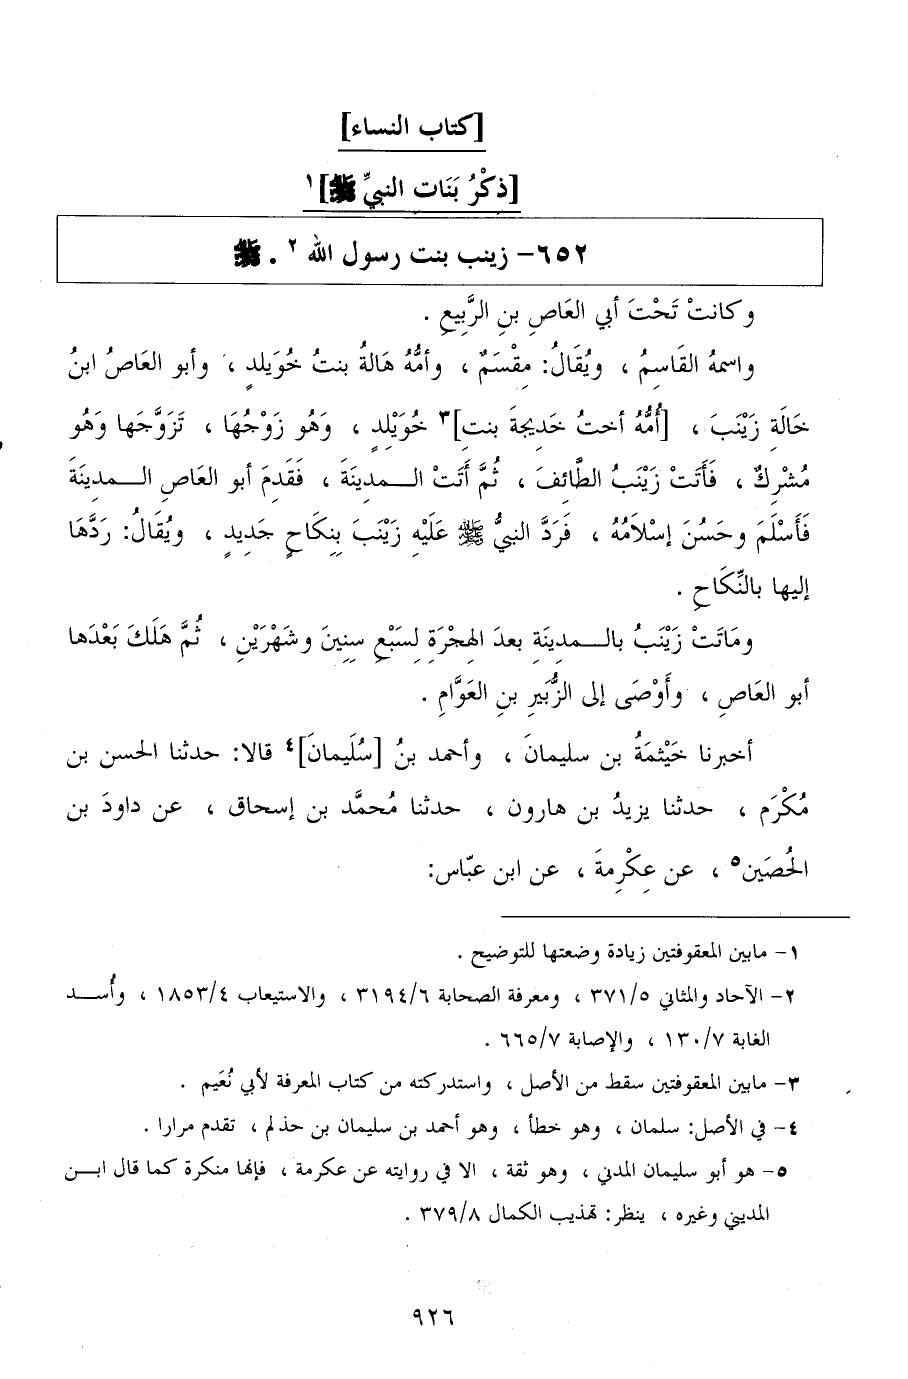 [كتاب النساء]
[ذكْرُ بَنَات النبيِّ ﷺ]١
٦٥٢- زينب بنت رسول الله ٢ . ﷺ
وكانتْ تَحْتَ أبي العَاصِ بنِ الرَّبِيعِ .
واسمهُ القَاسِمُ ، ويُقَالُ: مِقْسَمٌ ، وأمُّهُ هَالةُ بنتُ خُوَيلدٍ ، وأبو العَاصُ ابنُ
خَالَةِ زَيْنَبَ ، [أُمُّهُ أختُ خَديجةَ بنت]٣ خُوَيْلِدٍ ، وهُو زَوْجُهَا ، تَزَوَّجَها وهُو
مُشْرِكٌ ، فَأَتَتْ زَيْنَبُ الطَّائفَ ، ثُمَّ أتَتْ الـــمدينَةَ ، فَقَدِمَ أبو العَاصِ الـــمدِينَةَ
فَأَسْلَمَ وحَسُنَ إسْلاَمُهُ ، فَرَدَّ النبيُّ ﷺ عَلَيْهِ زَيْنَبَ بِنِكَاحٍ جَديدٍ ، ويُقَالُ: رَدَّهَا
إليها بالنِّكَاحِ .
ومَاتَتْ زَيْنَبُ بالـــمدِينَةِ بعدَ الهِجْرَةِ لسَبْعِ سِنِينَ وشَهْرَيْنِ ، ثُمَّ هَلَكَ بَعْدَها
أبو العَاصِ ، وأَوْصَى إلى الزُّبَيرِ بنِ العَوَّامِ .
أخبرنا خَيْثمَةُ بن سليمانَ ، وأحمد بنُ [سُلَيمانَ]٤ قالا: حدثنا الحسن بن
مُكْرَم ، حدثنا يزيدُ بن هارون ، حدثنا مُحمَّد بن إسحاق ، عن داودَ بن
الحُصَين٥ ، عن عِكْرِمةَ ، عن ابن عبّاس:
١- مابين المعقوفتين زيادة وضعتها للتوضيح .
٢- الآحاد والمثاني ٣٧١/٥ ، ومعرفة الصحابة ٣١٩٤/٦ ، والاستيعاب ١٨٥٣/٤ ، وأُسـد
الغابة ١٣٠/٧ ، والإصابة ٦٦٥/٧ .
٣- مابين المعقوفتين سقط من الأصل ، واستدركته من كتاب المعرفة لأبي نُعَيم .
٤- في الأصل: سلمان ، وهو خطأ ، وهو أحمد بن سليمان بن حذلم ، تقدم مرارا .
٥- هو أبو سليمان المدني ، وهو ثقة ، الا في روايته عن عكرمة ، فإنها منكرة كما قال ابـن
المديني وغيره ، ينظر: تهذيب الكمال ٣٧٩/٨ .
٩٢٦